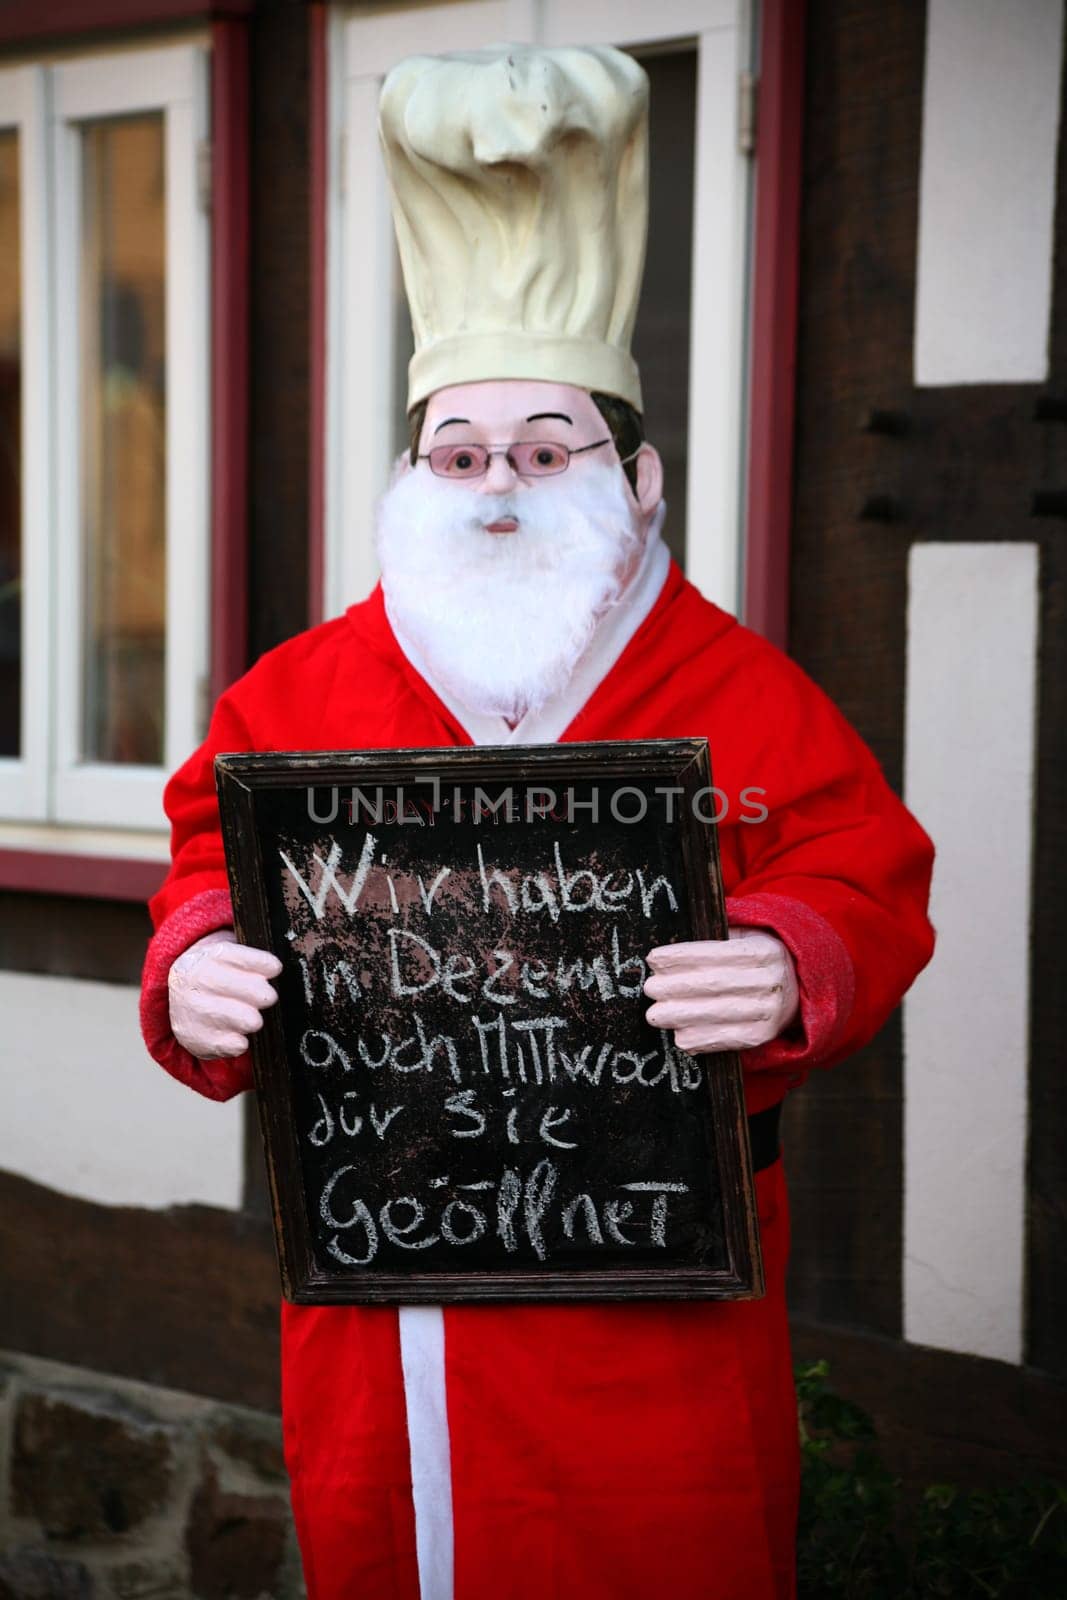 TODAY'S MENU
UNLIMPHOTOS
Wir haben
in Dezemb
auch Mittwoch
für Sie
Geöffnet